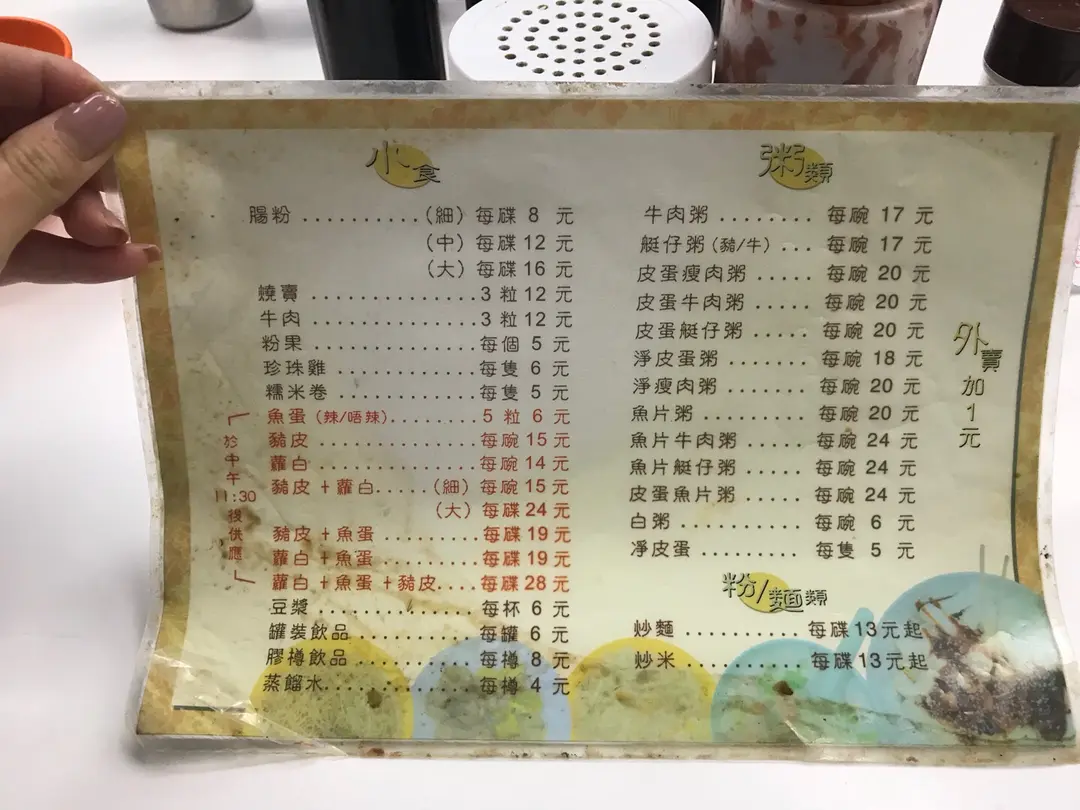 小食
腸粉 ...........（細）每碟 8 元
（中）每碟 12 元
（大）每碟 16 元
燒賣 ................3 粒 12 元
牛肉 ................3 粒 12 元
粉果 ................每個 5 元
珍珠雞 ..............每隻 6 元
糯米卷 ..............每隻 5 元
於中午11:30後供應
魚蛋（辣/唔辣）......... 5 粒 6 元
豬皮 ................每碗 15 元
蘿白 ................每碗 14 元
豬皮＋蘿白.....（細）每碗 15 元
（大）每碟 24 元
豬皮＋魚蛋 ..........每碟 19 元
蘿白＋魚蛋 ..........每碟 19 元
蘿白＋魚蛋＋豬皮....每碟 28 元
豆漿 ................每杯 6 元
罐裝飲品 .............每罐 6 元
膠樽飲品 .............每樽 8 元
蒸餾水...............每樽 4 元
粥類
牛肉粥 ........ 每碗 17 元
艇仔粥（豬/牛）... 每碗 17 元
皮蛋瘦肉粥 ..... 每碗 20 元
皮蛋牛肉粥 ..... 每碗 20 元
皮蛋艇仔粥 ..... 每碗 20 元
淨皮蛋粥 ....... 每碗 18 元
淨瘦肉粥 ....... 每碗 20 元
魚片粥 ......... 每碗 20 元
魚片牛肉粥 ..... 每碗 24 元
魚片艇仔粥 ..... 每碗 24 元
皮蛋魚片粥 ..... 每碗 24 元
白粥 .......... 每碗 6 元
凈皮蛋 ......... 每隻 5 元
外賣加1元
粉/麵類
炒麵 .......... 每碟 13 元起
炒米 .......... 每碟 13 元起